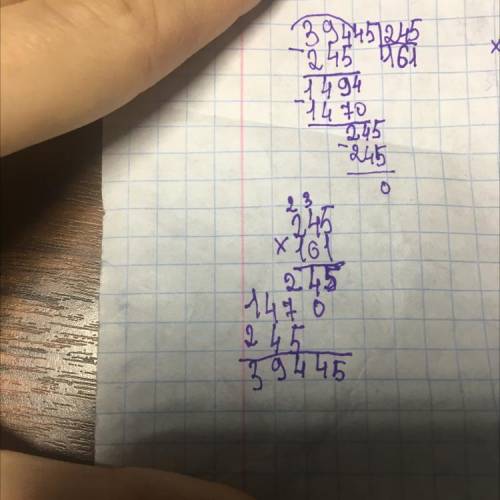 39445 245
- 245 161
1494
- 1470
245
- 245
0
2 3
245
× 161
245
1470
245
39445
×